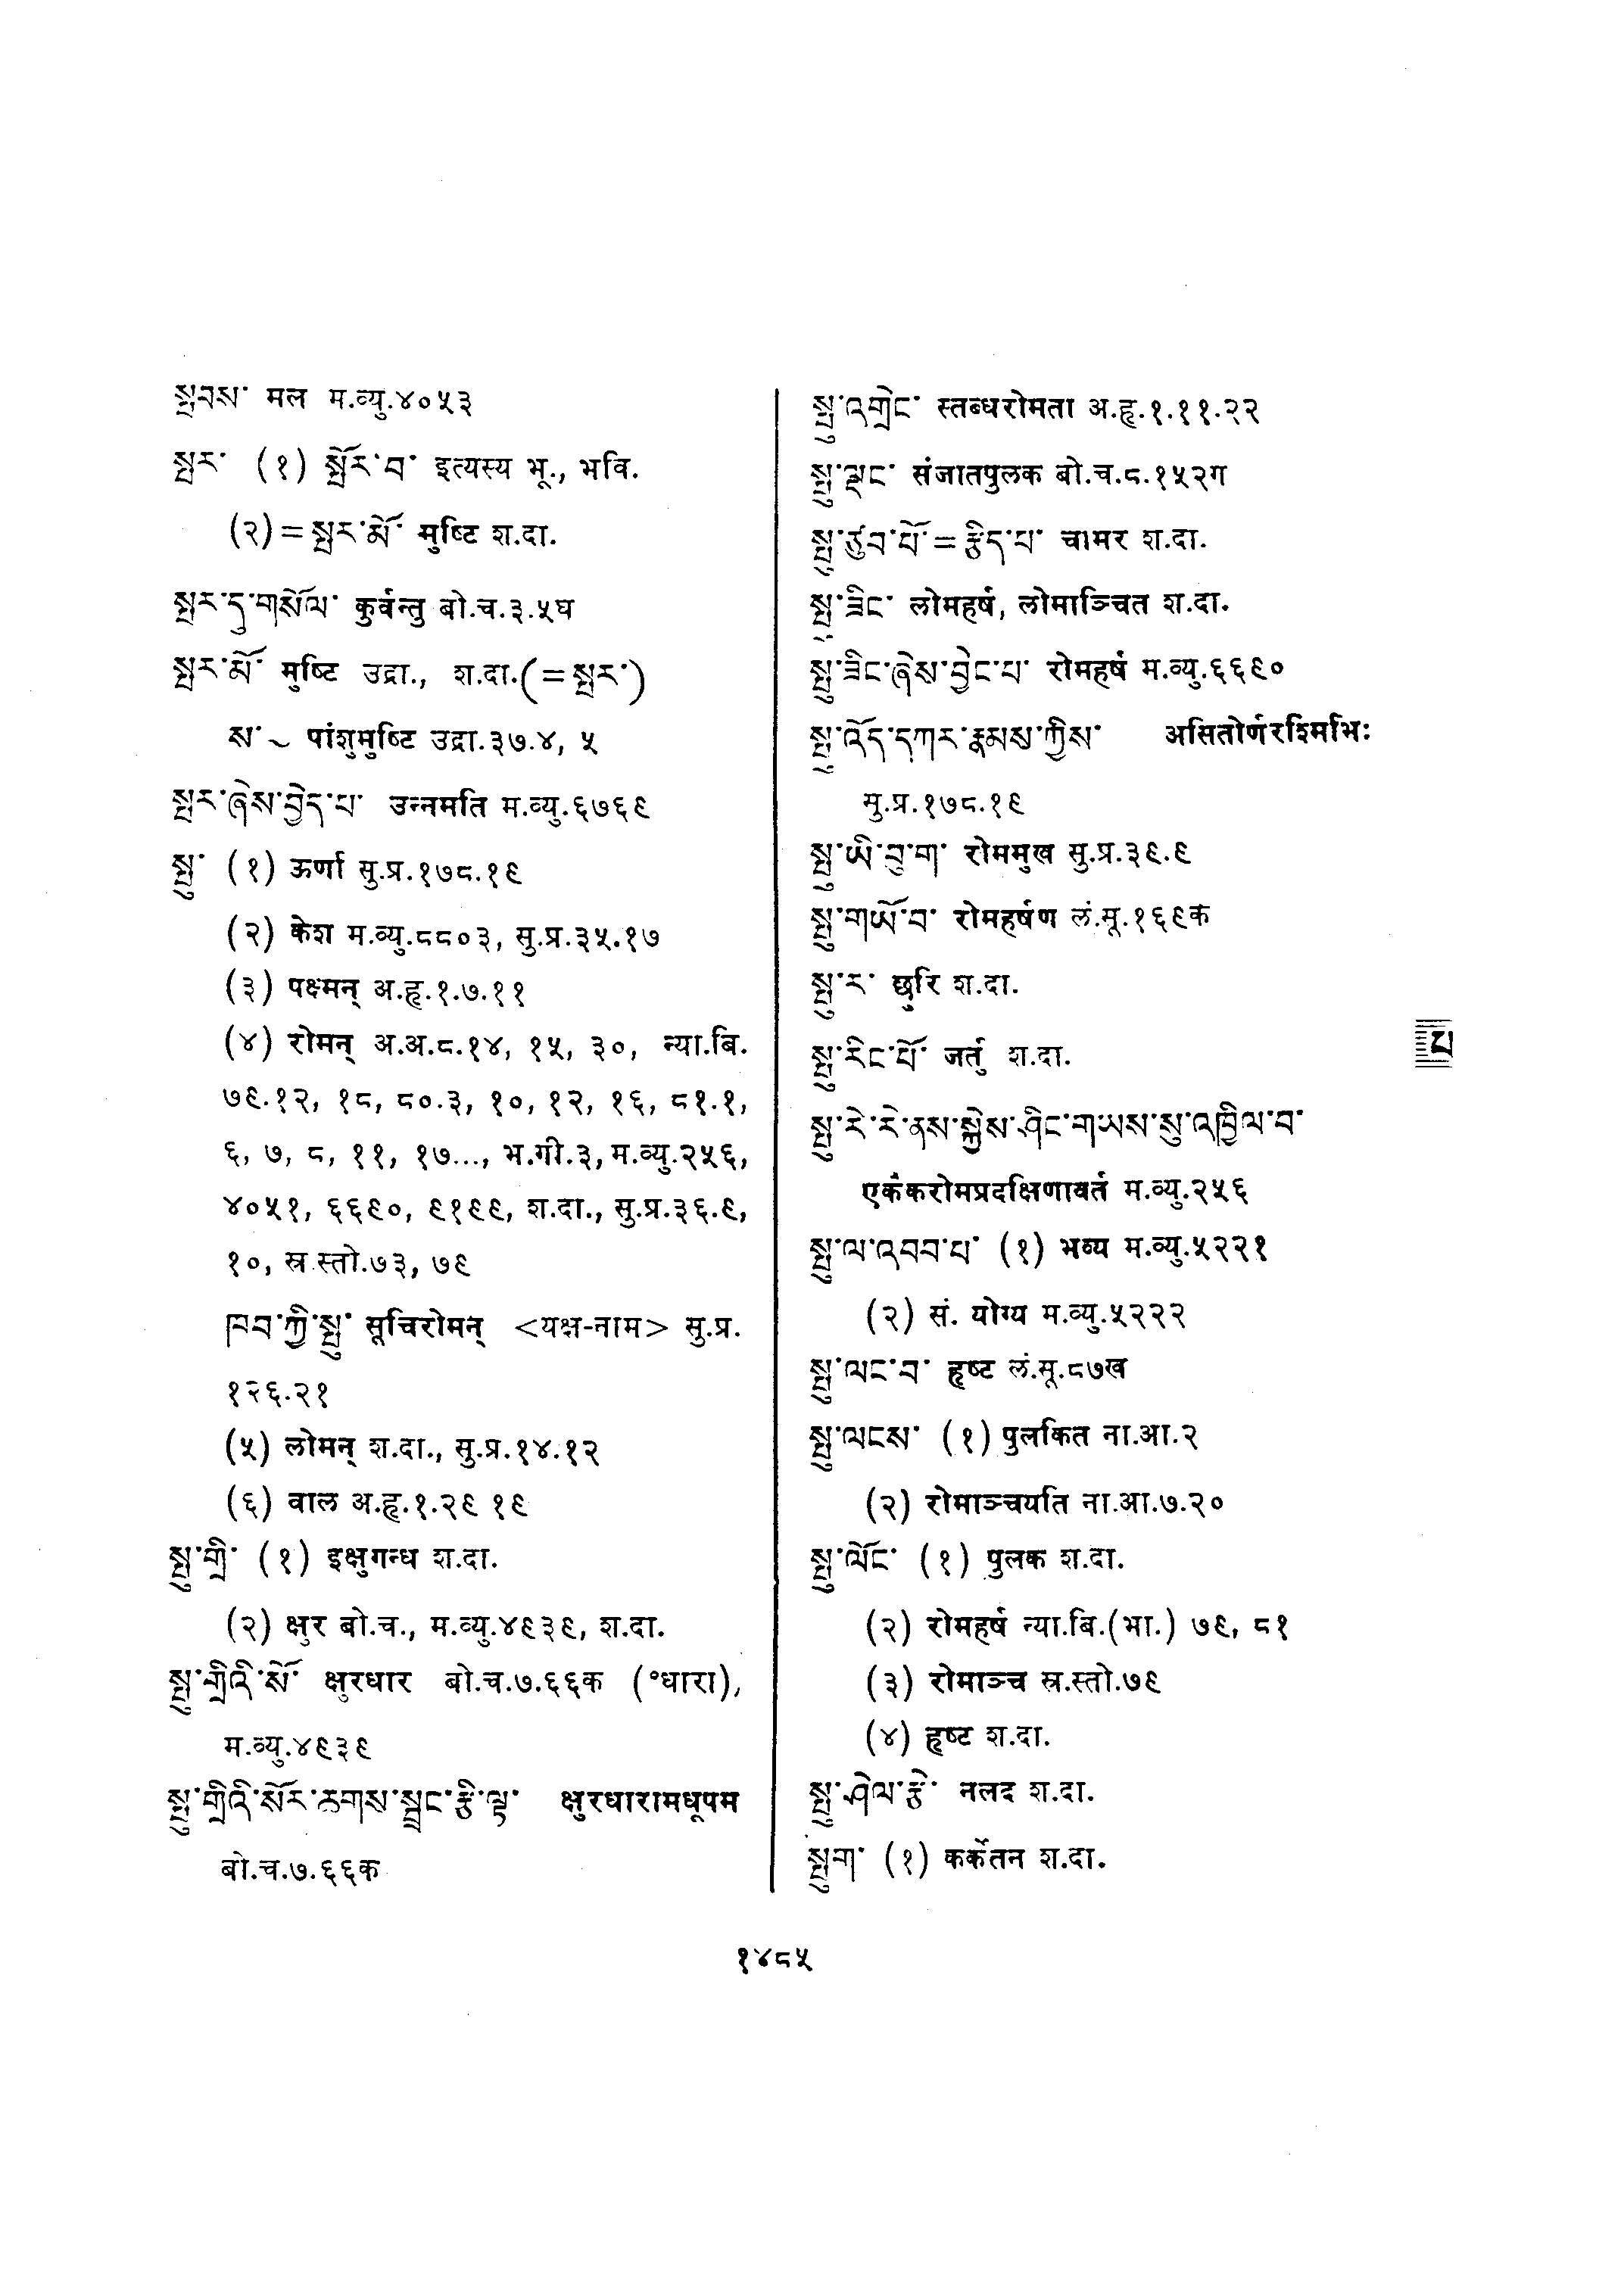 སྤྲབས་ मल म.व्यु.४०५३
སྤར་ (१) སྤོར་བ་ इत्यस्य भू., भवि.
(२) = སྤར་མོ་ मुष्टि श.दा.
སྤར་དུ་གསོལ་ कुर्वन्तु बो.च.३.५घ
སྤར་མོ་ मुष्टि उद्रा., श.दा.(=སྤར་)
ས་ ~ पांशुमुष्टि उद्रा.३७.४, ५
སྤར་ཞེས་བྱེད་པ་ उन्नमति म.व्यु.६७६९
སྤུ་ (१) ऊर्णा सु.प्र.१७८.१९
(२) केश म.व्यु.८८०३, सु.प्र.३५.१७
(३) पक्ष्मन् अ.हृ.१.७.११
(४) रोमन् अ.अ.८.१४, १५, ३०, न्या.बि.
७९.१२, १८, ८०.३, १०, १२, १६, ८१.१,
६, ७, ८, ११, १७..., भ.गी.३, म.व्यु.२५६,
४०५१, ६६९०, ९१९९, श.दा., सु.प्र.३६.९,
१०, स्र.स्तो.७३, ७९
ཁབ་ཀྱི་སྤུ་ सूचिरोमन् <यक्ष-नाम> सु.प्र.
१२६.२१
(५) लोमन् श.दा., सु.प्र.१४.१२
(६) वाल अ.हृ.१.२९ १९
སྤུ་གྲི་ (१) इक्षुगन्ध श.दा.
(२) क्षुर बो.च., म.व्यु.४९३९, श.दा.
སྤུ་གྲིའི་སོ་ क्षुरधार बो.च.७.६६क (°धारा),
म.व्यु.४९३९
སྤུ་གྲིའི་སོར་ཆགས་སྦྲང་རྩི་ལྟ་ क्षुरधारामधूपम
बो.च.७.६६क
སྤུ་འགྲེང་ स्तब्धरोमता अ.हृ.१.११.२२
སྤུ་ལྡང་ संजातपुलक बो.च.८.१५२ग
སྤུ་ཙུབ་པོ་ = རྩིད་པ་ चामर श.दा.
སྤུ་ཟིང་ लोमहर्ष, लोमाञ्चित श.दा.
སྤུ་ཟིང་ཞེས་བྱེང་པ་ रोमहर्ष म.व्यु.६६९०
སྤུ་འོད་དཀར་རྣམས་ཀྱིས་ असितोर्णरश्मिभिः
सु.प्र.१७८.१९
སྤུ་ཡི་བུ་ག་ रोममुख सु.प्र.३९.९
སྤུ་གཡོ་བ་ रोमहर्षण लं.मू.१६९क
སྤུ་ར་ छुरि श.दा.
སྤུ་རིང་པོ་ जर्तु श.दा.
སྤུ་རེ་རེ་ནས་སྐྱེས་ཤིང་གཡས་སུ་འཁྱིལ་བ་
एकैकरोमप्रदक्षिणावर्त म.व्यु.२५६
སྤུ་ལ་འབབ་པ་ (१) भव्य म.व्यु.५२२१
(२) सं. योग्य म.व्यु.५२२२
སྤུ་ལང་བ་ हृष्ट लं.मू.८७ख
སྤུ་ལངས་ (१) पुलकित ना.आ.२
(२) रोमाञ्चयति ना.आ.७.२०
སྤུ་ལོང་ (१) पुलक श.दा.
(२) रोमहर्ष न्या.बि.(भा.) ७९, ८१
(३) रोमाञ्च स्र.स्तो.७९
(४) हृष्ट श.दा.
སྤུ་ཤེལ་རྩེ་ नलद श.दा.
སྤུག་ (१) कर्केतन श.दा.
པ
१४८५